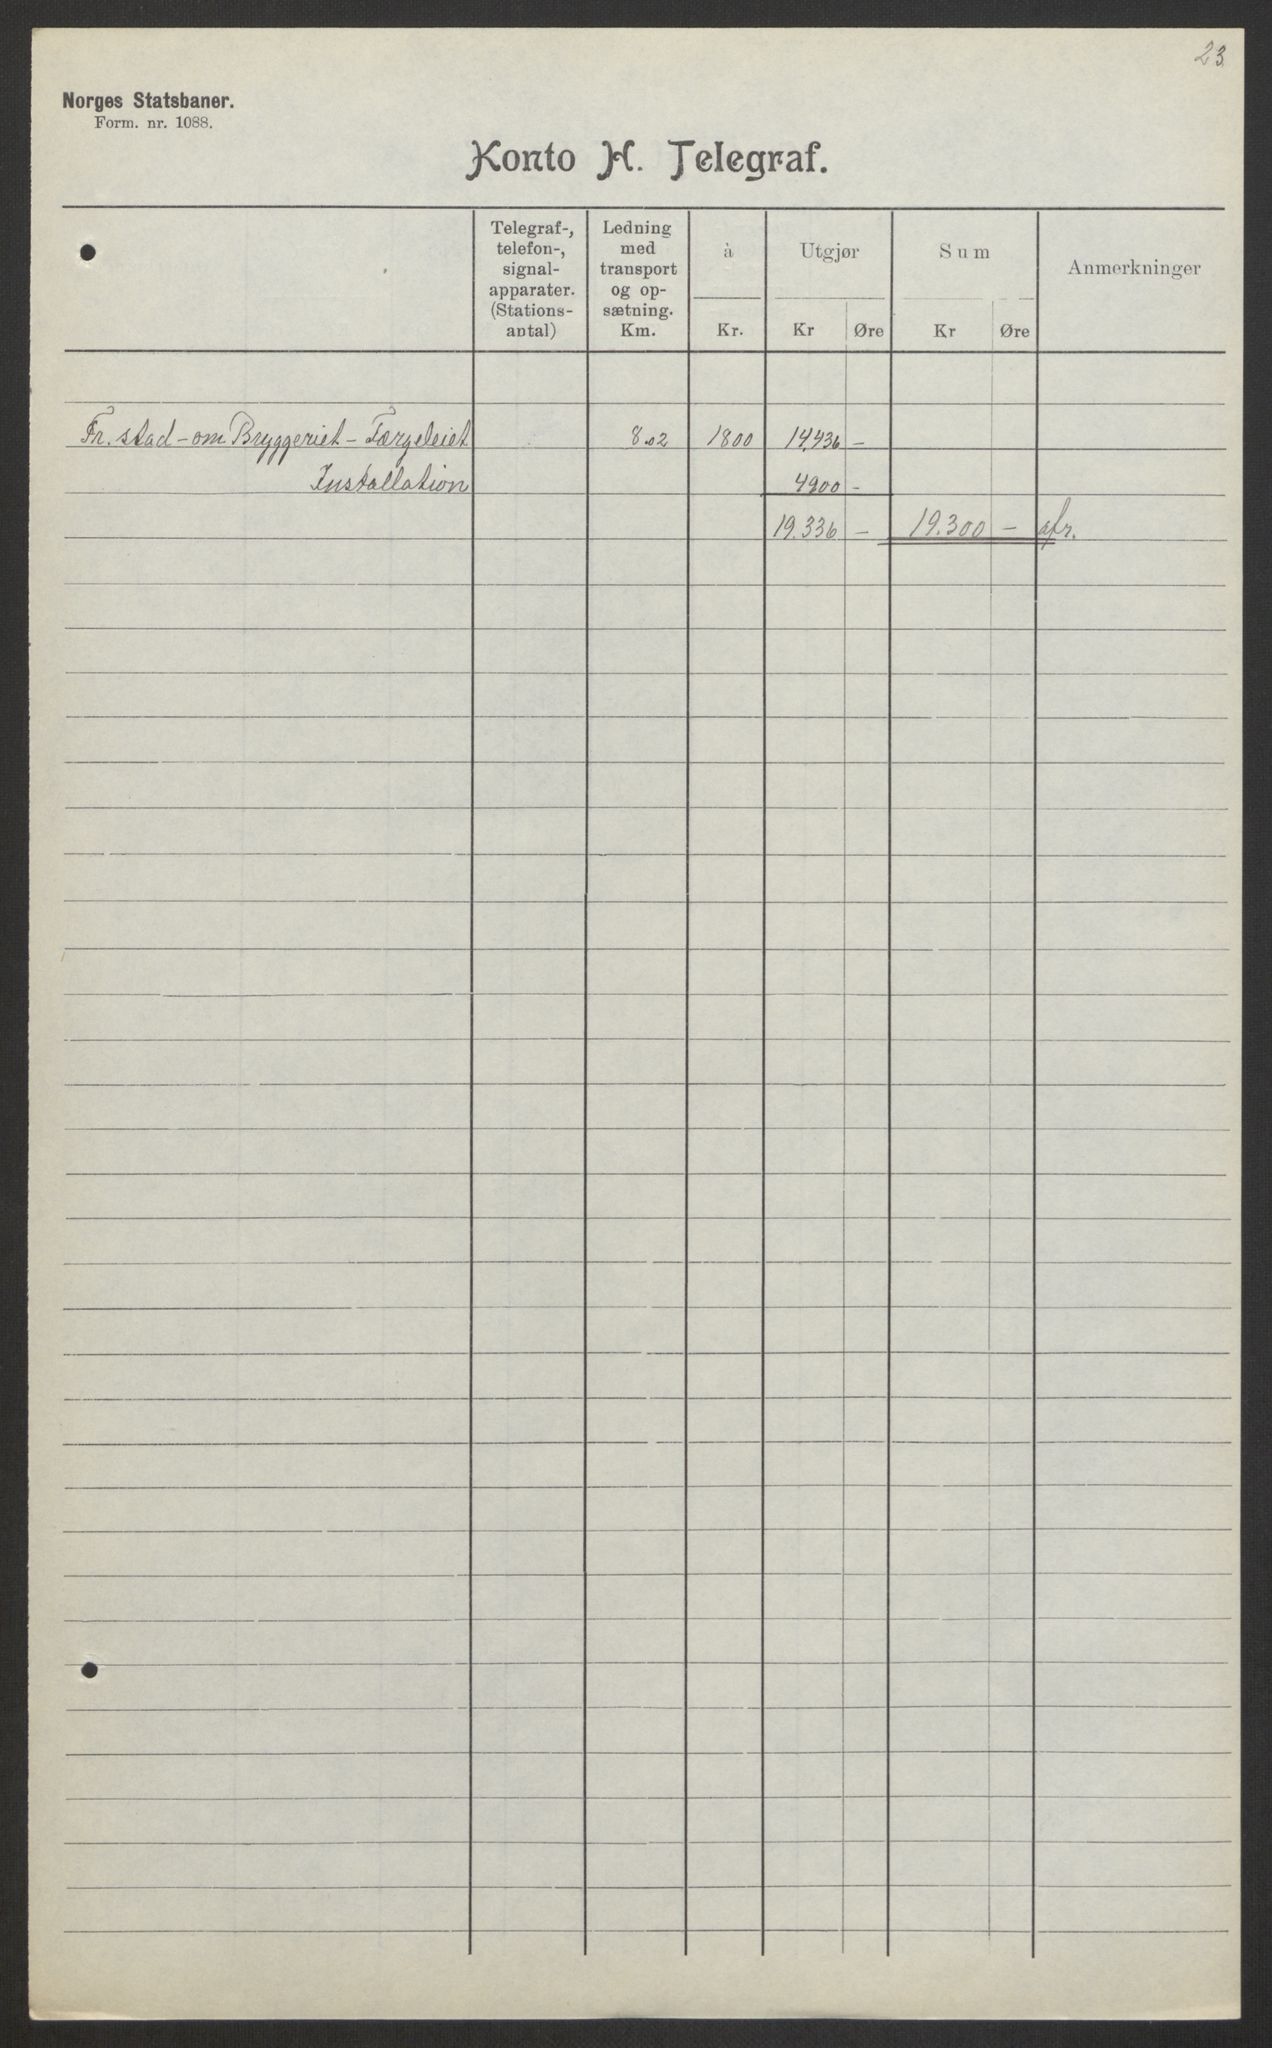 23
Norges Statsbaner.
Form. nr. 1088.
Konto H. Telegraf.
Telegraf-, telefon-, signal-apparater. (Stations-antal)
Ledning med transport og op-sætning. Km.
à
Kr.
Utgjør
Kr Øre
Sum
Kr Øre
Anmerkninger
Fr.stad - om Bryggeriet - Færgeleiet 8.02 1800 14,436 -
Installation 4900 -
19.336 - 19.300 - afr.